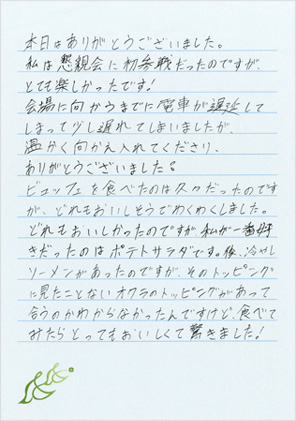 本日はありがとうございました。
私は懇親会に初参戦だったのですが、
とても楽しかったです!
会場に向かうまでに電車が遅延して
しまって少し遅れてしまいましたが、
温かく向かえ入れてくださり、
ありがとうございました。
ビュッフェを食べたのは久々だったのです
が、どれもおいしそうでわくわくしました。
どれもおいしかったのですが私が一番好
きだったのはポテトサラダです。後、冷やし
ソーメンがあったのですが、そのトッピング
に見たことないオクラのトッピングがあって
合うのかわからなかったんですけど、食べて
みたらとってもおいしくて驚きました!